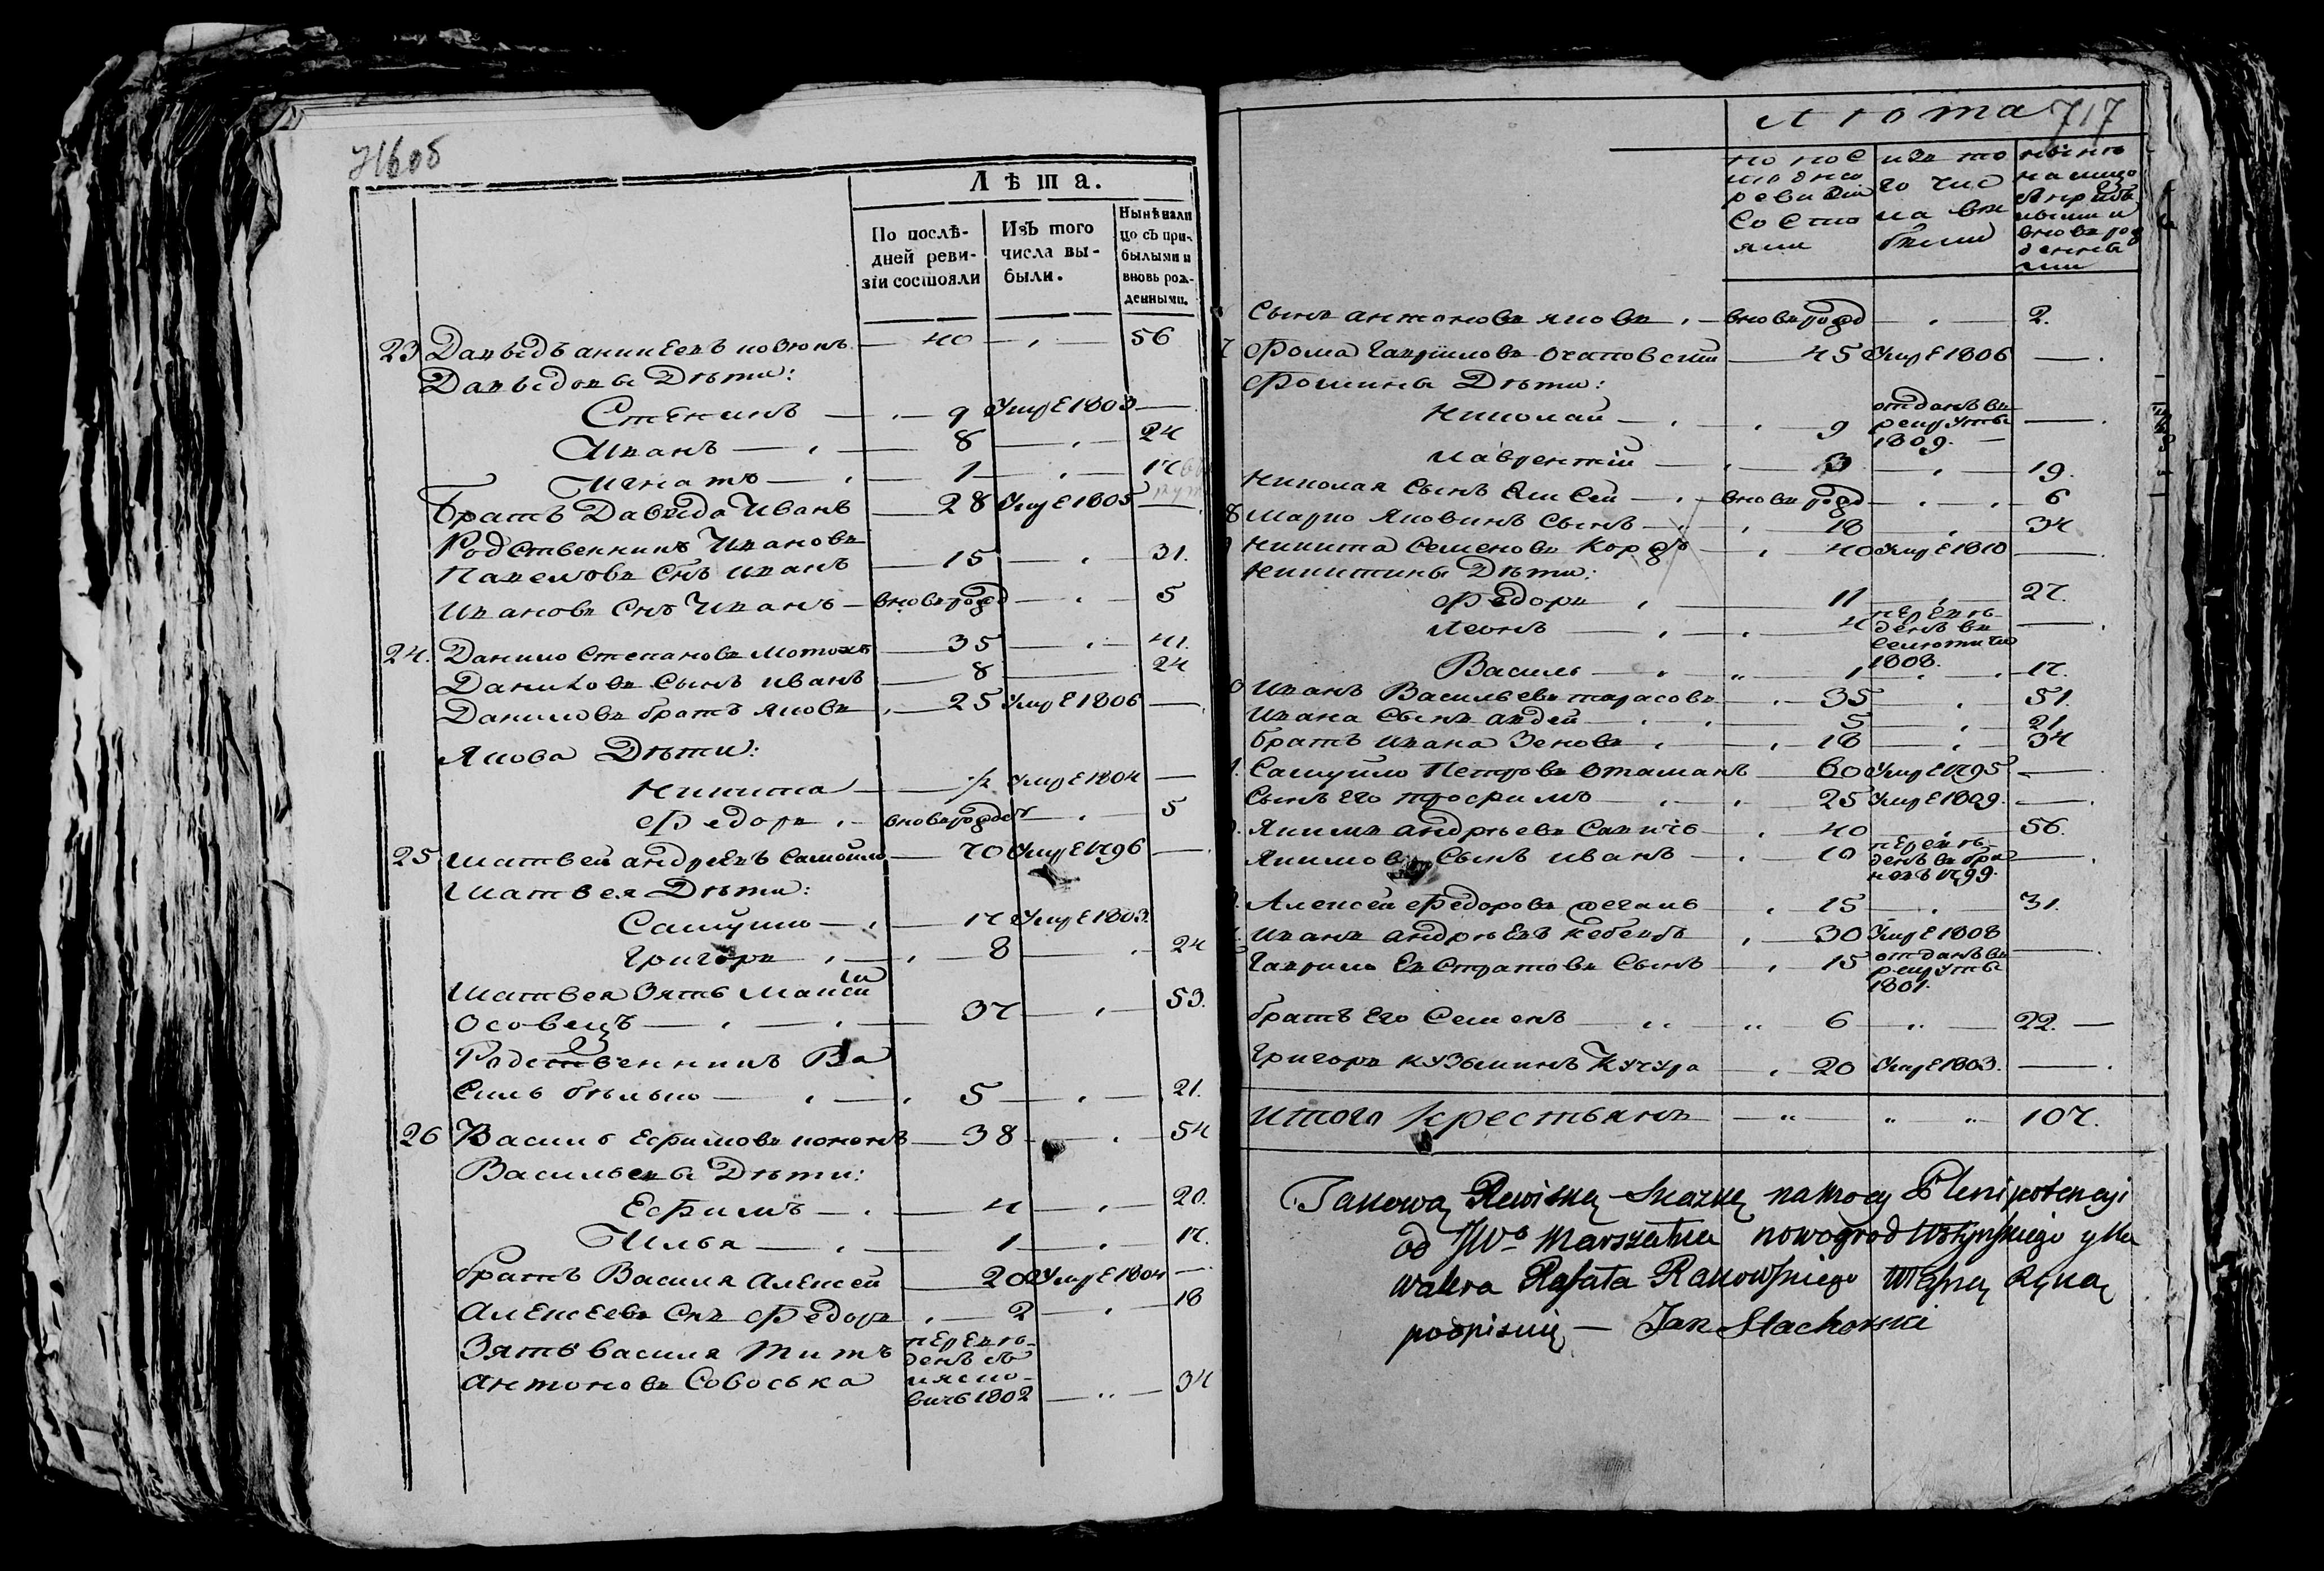 716об
Лѣта.
По послѣ-
дней реви-
зіи состояли
Изъ того
числа вы-
были.
Нынѣ нали
цо съ при-
былыми и
вновь рож-
денными.
23 Давыдъ аникеевъ 40 — 56
Давыдовы Дѣти:
Степанъ — 9 Умре 1803 —
Иванъ — 8 — 24
Игнатъ — 1 — 17
Братъ Давыда Иванъ — 28 Умре 1805 —
Родственникъ Ивановъ
Павеловъ Снъ иванъ — 15 — 31.
Ивановъ Снъ Иванъ — вновь рожд — 5
24. Данило Степановъ Мотохъ — 35 — 41.
Даниловъ Сынъ иванъ — 8 — 24
Даниловъ братъ яковъ — 25 Умре 1806 —
Якова Дѣти:
Никита — ½ Умре 1804 —
федоръ — вновь рожден — 5
25 Матвей андреевъ Самойло — 70 Умре 1796 —
Матвея Дѣти:
Самуйло — 17 Умре 1803.
Григоръ — 8 — 24
Матвея Зять Макси
Особецъ — 37 — 53.
Родственникъ Ва
силь — 5 — 21.
26 Василь Ефимовъ кононъ — 38 — 54
Васильевы Дѣти:
Ефимъ — 4 — 20.
Илья — 1 — 17.
братъ Василя Алексей 20 Умре 1804 —
Алексеевъ Снъ федоръ — 2 — 18
Зять василя Титъ переве-
денъ въ
Антоновъ Собоська
вичъ 1802 — 34
717
Лѣта
по пос
ледней
ревизіи
состо
яли
изъ то
го чис
ла вы
были
нынѣ
налицо
съ прибы
лыми и
вновь рож
денны
ми
Сынъ антоновъ яковъ — вновь рожд — 2.
Фома Гаврилов — 45 Умре 1806 —
Фомины Дѣти:
Николай — 9 отданъ въ
рекруты
1809. —
Лаврентій — 3 — 19.
Николая Сынъ Елисей — вновь рожд — 6
Марко Яковинъ Сынъ — 18 — 34
Никита Семеновъ — 40 Умре 1810 —
Никитины Дѣти:
Федоръ — 11 — 27.
Леонъ — 4 переве-
денъ въ
1808.
Василь — 1 — 17.
Иванъ Васильевъ тарасовъ — 35 — 51.
Ивана Сынъ авдей — 5 — 21.
братъ ивана Зеновъ — 18 — 34
Самуйло Петровъ Отаманъ — 60 Умре 1795 —
Сынъ Его трофимъ — 25 Умре 1809. —
Якимъ андрѣевъ Савичъ — 40 — 56.
Якимовъ Сынъ иванъ — 10 переве-
денъ въ
1799.
Алексей Федоровъ — 15 — 31.
Иванъ андрѣевъ — 30 Умре 1808
Гаврило Евстратовъ Сынъ — 15 отданъ въ
рекруты
1801.
братъ Его Семенъ — 6 — 22. —
Григоръ кузьминъ Кучура — 20 Умре 1803. —
Итого крестьянъ — 107.
Takową Rewiską Skazkę na mocy Plenipotencyi
od JWo Marszałka nowogrod Wołyńskiego y Ka
walera Rafała Rakowskiego Własną Ręką
podpisuię — Jan Stachorski